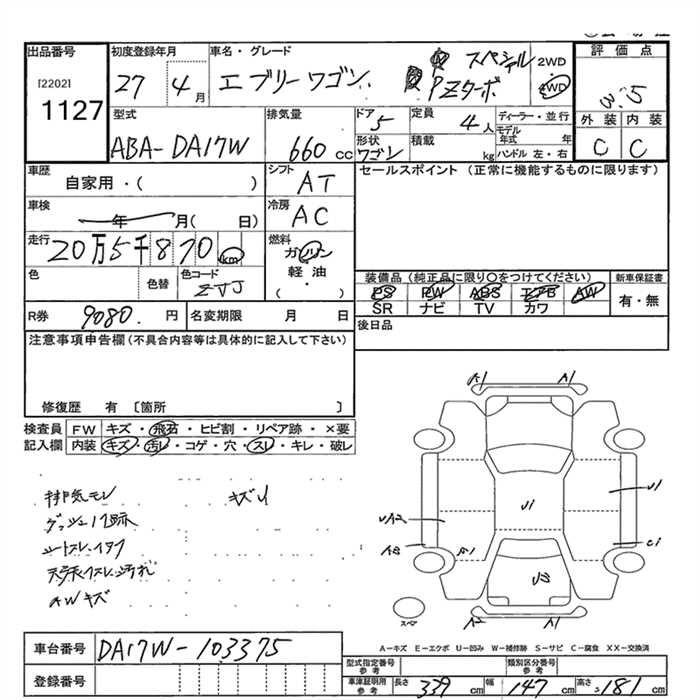 出品番号
[2202]
1127
初度登録年月
27 4月
車名・グレード
エブリーワゴン
スペシャル
PZターボ
2WD
4WD
評価点
3.5
外装 内装
C C
型式
ABA-DA17W
排気量
660 cc
ドア
5
形状
ワゴン
定員
4人
積載
kg
ディーラー・並行
モデル
年式 年
ハンドル 左・右
車歴
自家用・( )
シフト
AT
セールスポイント (正常に機能するものに限ります)
車検
年 月( 日)
冷房
AC
走行
20万5千870 km
燃料
ガソリン
軽油
( ・ )
色
色替
色コード
ZVJ
装備品 (純正品に限り〇をつけてください)
PS PW ABS エアB AW
SR ナビ TV カワ
新車保証書
有・無
R券 9080. 円
名変期限 月 日
後日品
注意事項申告欄(不具合内容等は具体的に記入して下さい)
修復歴 有 〔箇所 〕
検査員
記入欄
FW キズ・飛石・ヒビ割・リペア跡・×要
内装 キズ・汚レ・コゲ・穴・スレ・キレ・破レ
排気モレ
キズ
AWキズ
A1 A1
U1
U1
A3
C1
S1
U3
A2 A1
スペア
A－キズ E－エクボ U－凹み W－補修跡 S－サビ C－腐食 XX－交換済
車台番号
DA17W-103375
登録番号
型式指定番号
参考
類別区分番号
参考
車庫証明用
参考
長さ 339 cm 幅 147 cm 高さ 181 cm